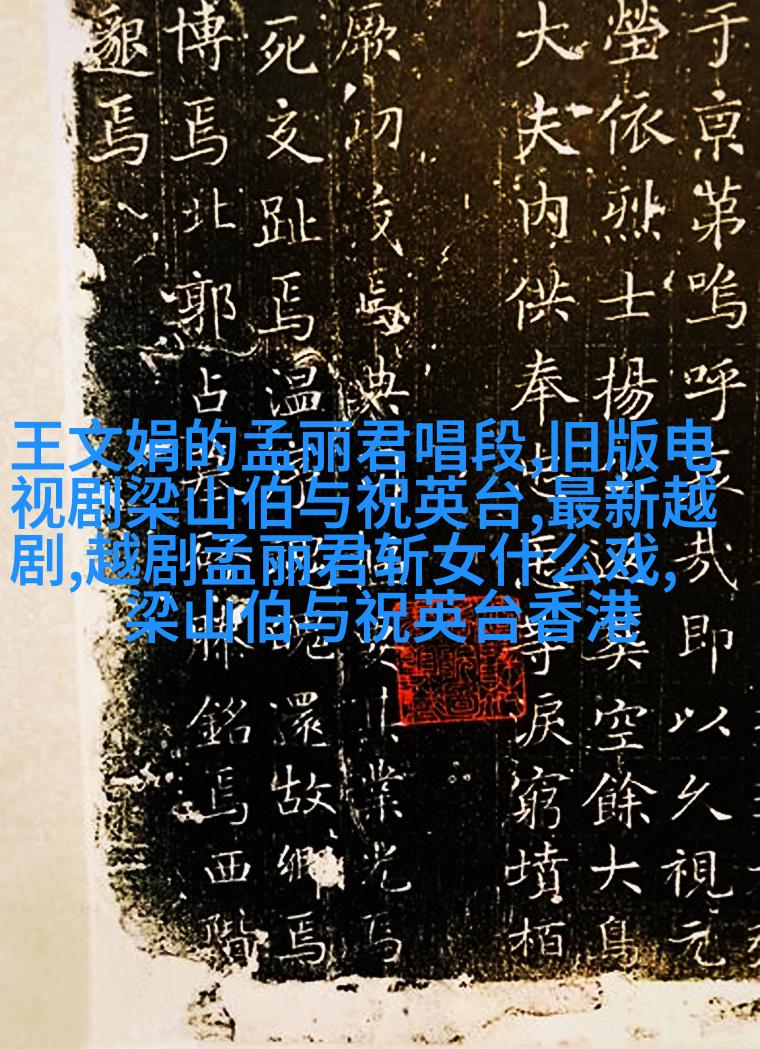 王文娟的孟丽君唱段,旧版电
视剧梁山伯与祝英台,最新越
剧,越剧孟丽君斩女什么戏,
梁山伯与祝英台香港
于京第呜呼哀哉即以久視元
瑩依烈士揚矣空餘大鳥
大夫内供奉等淚窮墳栢
厥初焉典業光焉
死交趾焉温還故鄉焉
博焉北郭占銘焉西階
邈焉